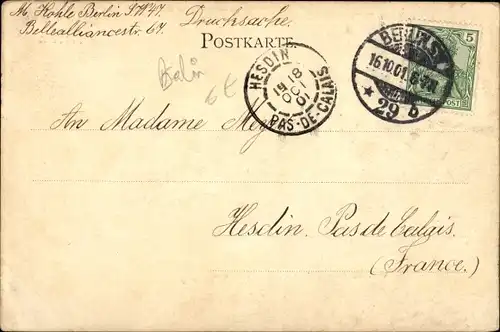 M. Kohle Berlin SW47.
Bellealliancestr. 67.
Drucksache.
POSTKARTE.
Berlin
6t
HESDIN
18
OCT
01
PAS-DE-CALAIS
BERLIN S
16.10.01.
* 29 b
5
An Madame
Hesdin. Pas de Calais.
(France.)